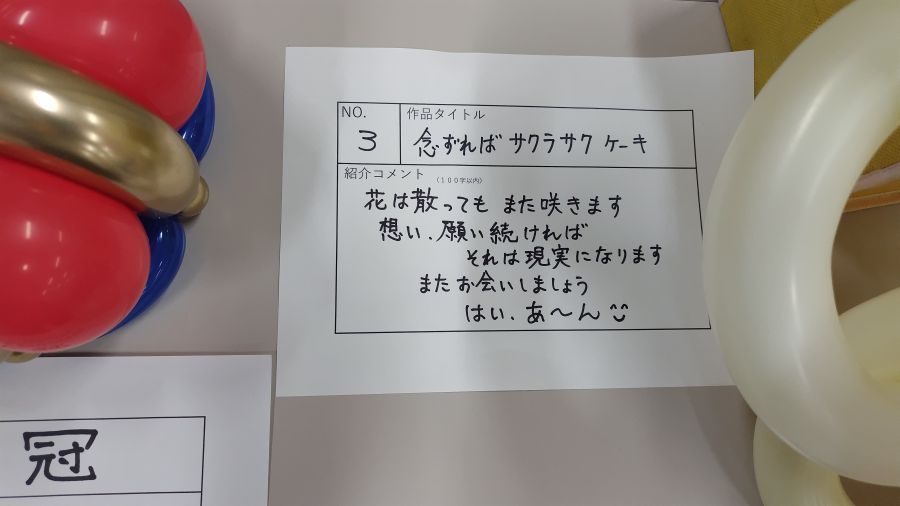 NO.
3
作品タイトル
念ずれば サクラサク ケーキ
紹介コメント (100字以内)
花は散っても また咲きます
想い、願い続ければ
それは現実になります
またお会いしましょう
はい、あ〜ん
冠